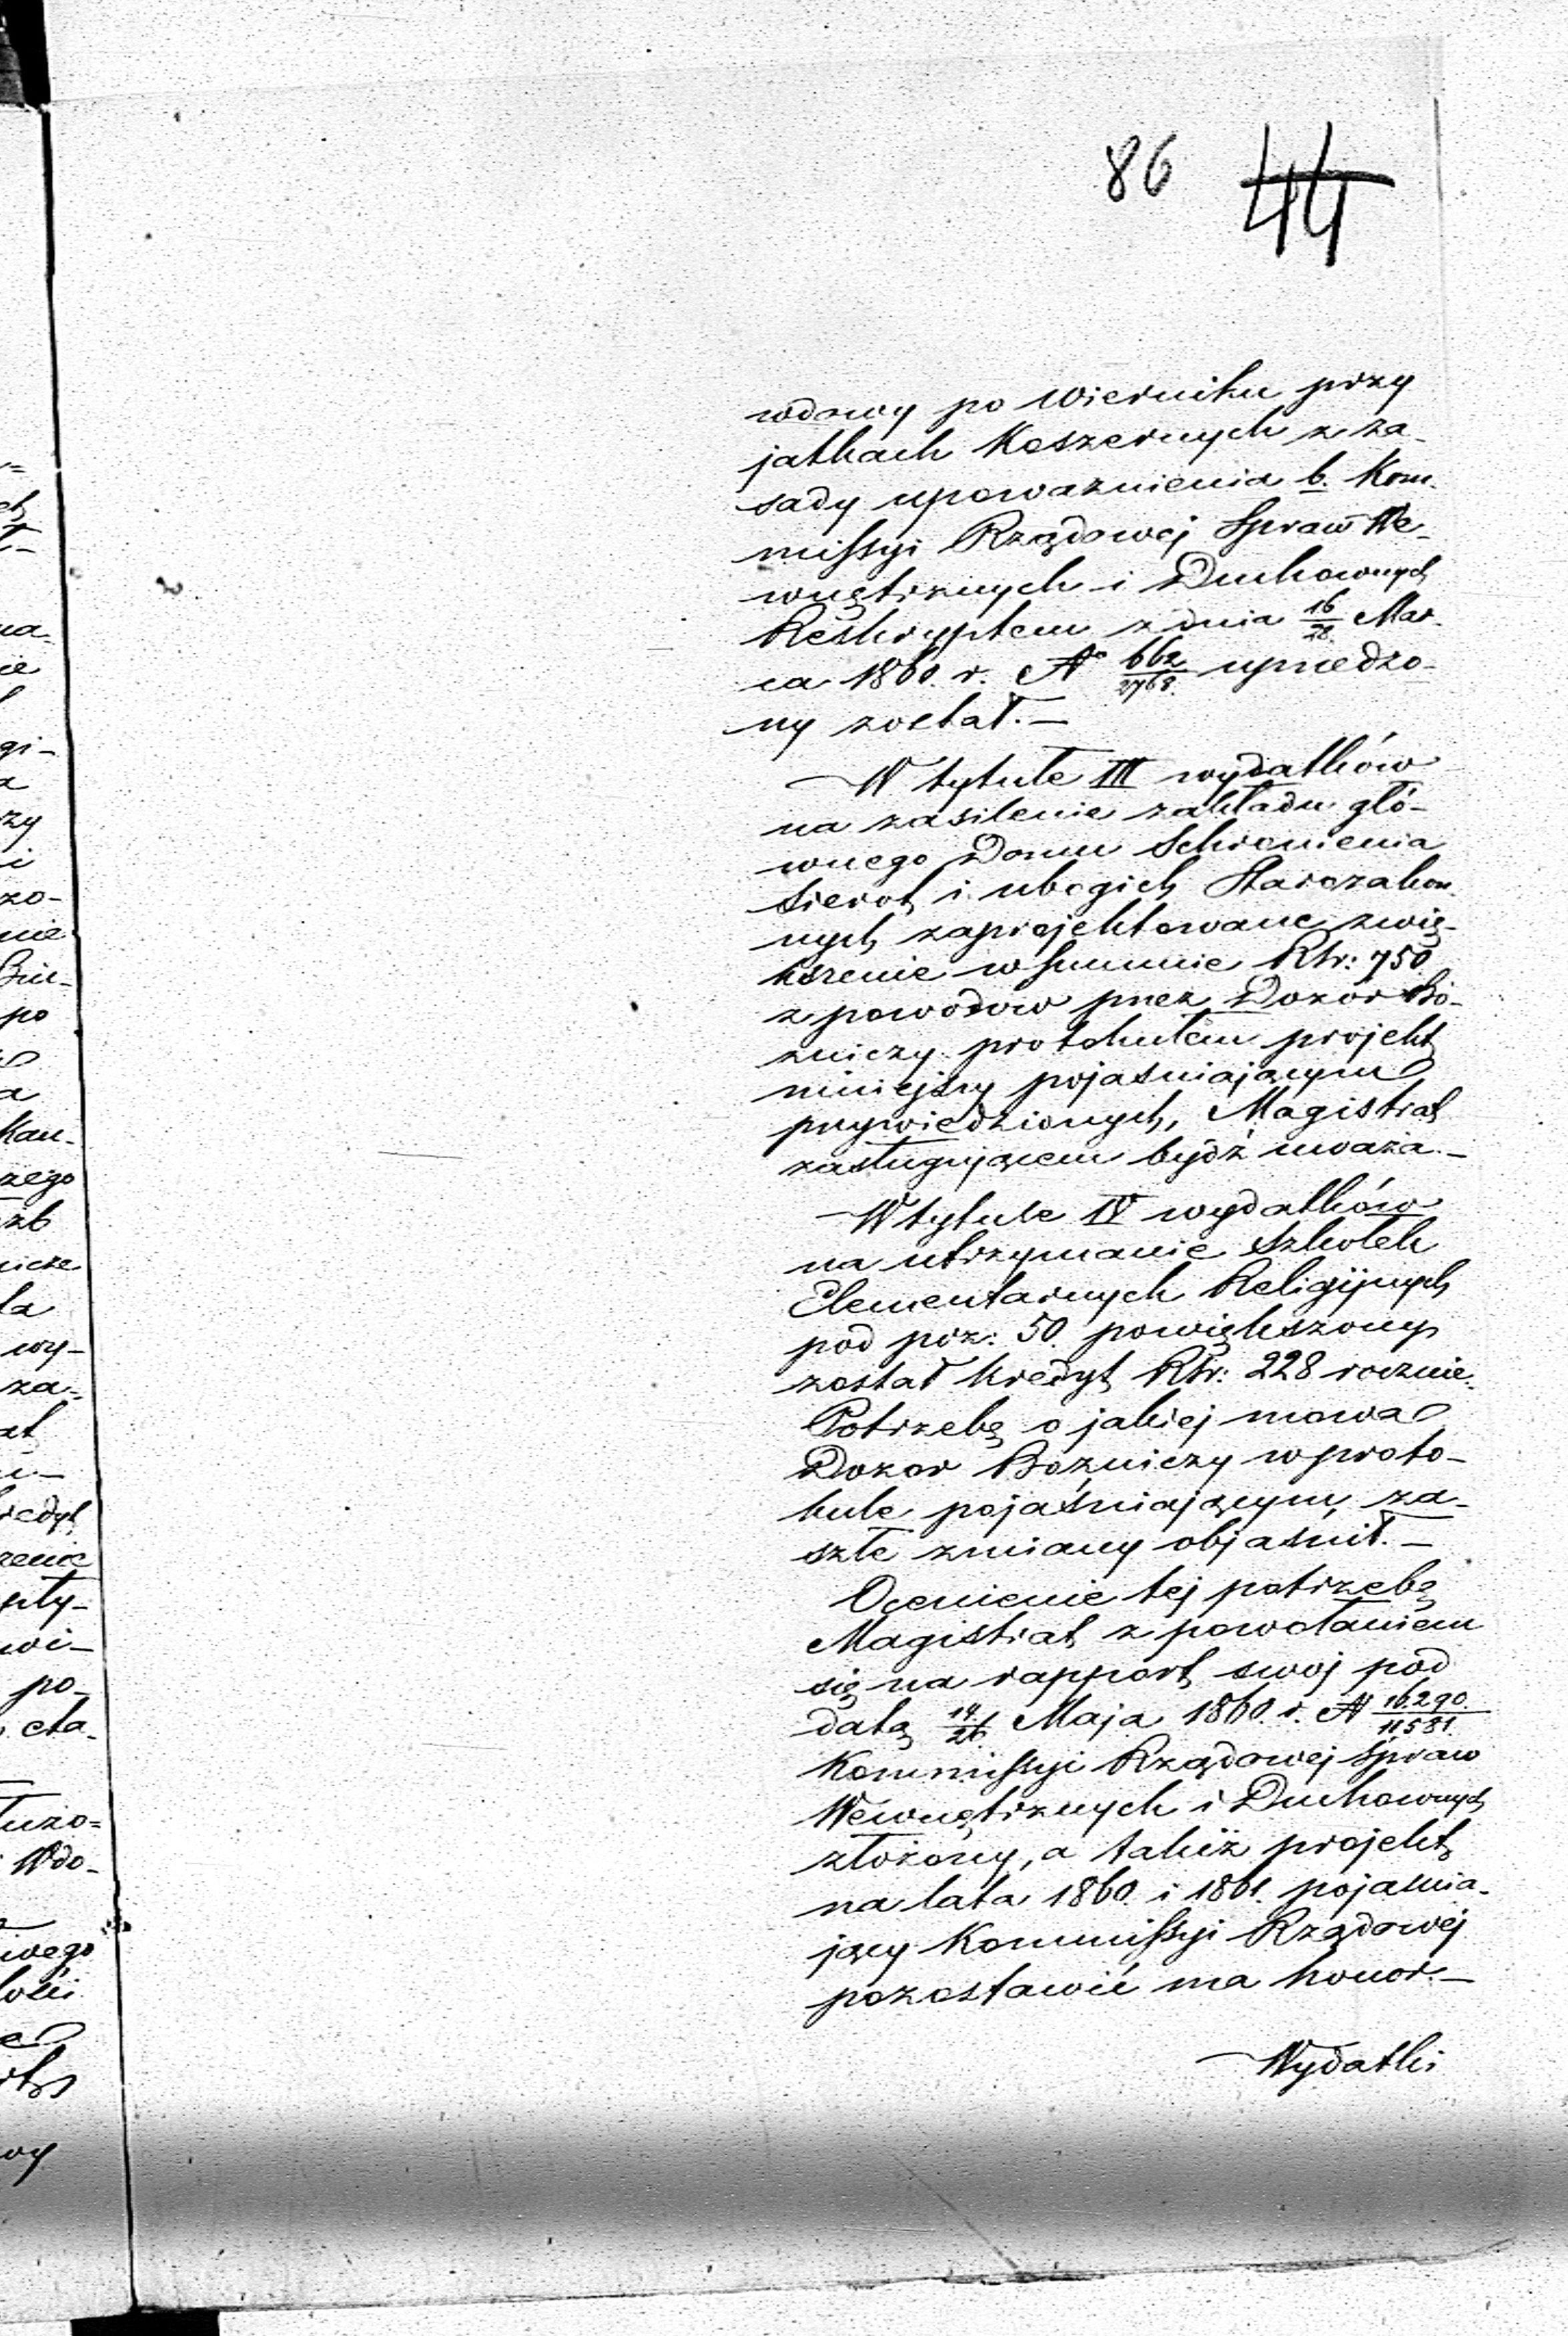 86 44
wdowy po Wierniku przy
jatkach Koszernych z za-
sady upoważnienia b. Kom-
missyi Rządowej Spraw We-
wnętrznych i Duchownych
Reskryptem z dnia 16/28 Mar-
ca 1860 r. No 662/2768 uprzedzo-
ny został.—
W tytule III wydatków
na zasilenie zakładu głó-
wnego Domu Schronienia
Sierot i ubogich Starozakon-
nych zaprojektowane zwię-
kszenie w summie Rsr: 750
z powodów przez Dozór Bó-
zniczy protokułem projekt
niniejszy pojaśniającym
przywiedzionych, Magistrat
zasługującem bydź uważa.—
W tytule IV wydatków
na utrzymanie Szkołek
Elementarnych Religijnych
pod poz: 50 powiększony
został kredyt Rsr: 228 rocznie.
Potrzebę o jakiej mowa
Dozor Bożniczy w proto-
kule pojaśniającym, za-
szłe zmiany objaśnił.—
Ocenienie tej potrzeby
Magistrat z powołaniem
się na rapport swoj pod
datą 14/26 Maja 1860 r. N 16290/11581
Kommissyi Rządowej Spraw
Wewnętrznych i Duchownych
złożony, a takiż projekt
na lata 1860 i 1861 pojaśnia-
jący Kommissyi Rządowej
pozostawić ma honor.—
Wydatki